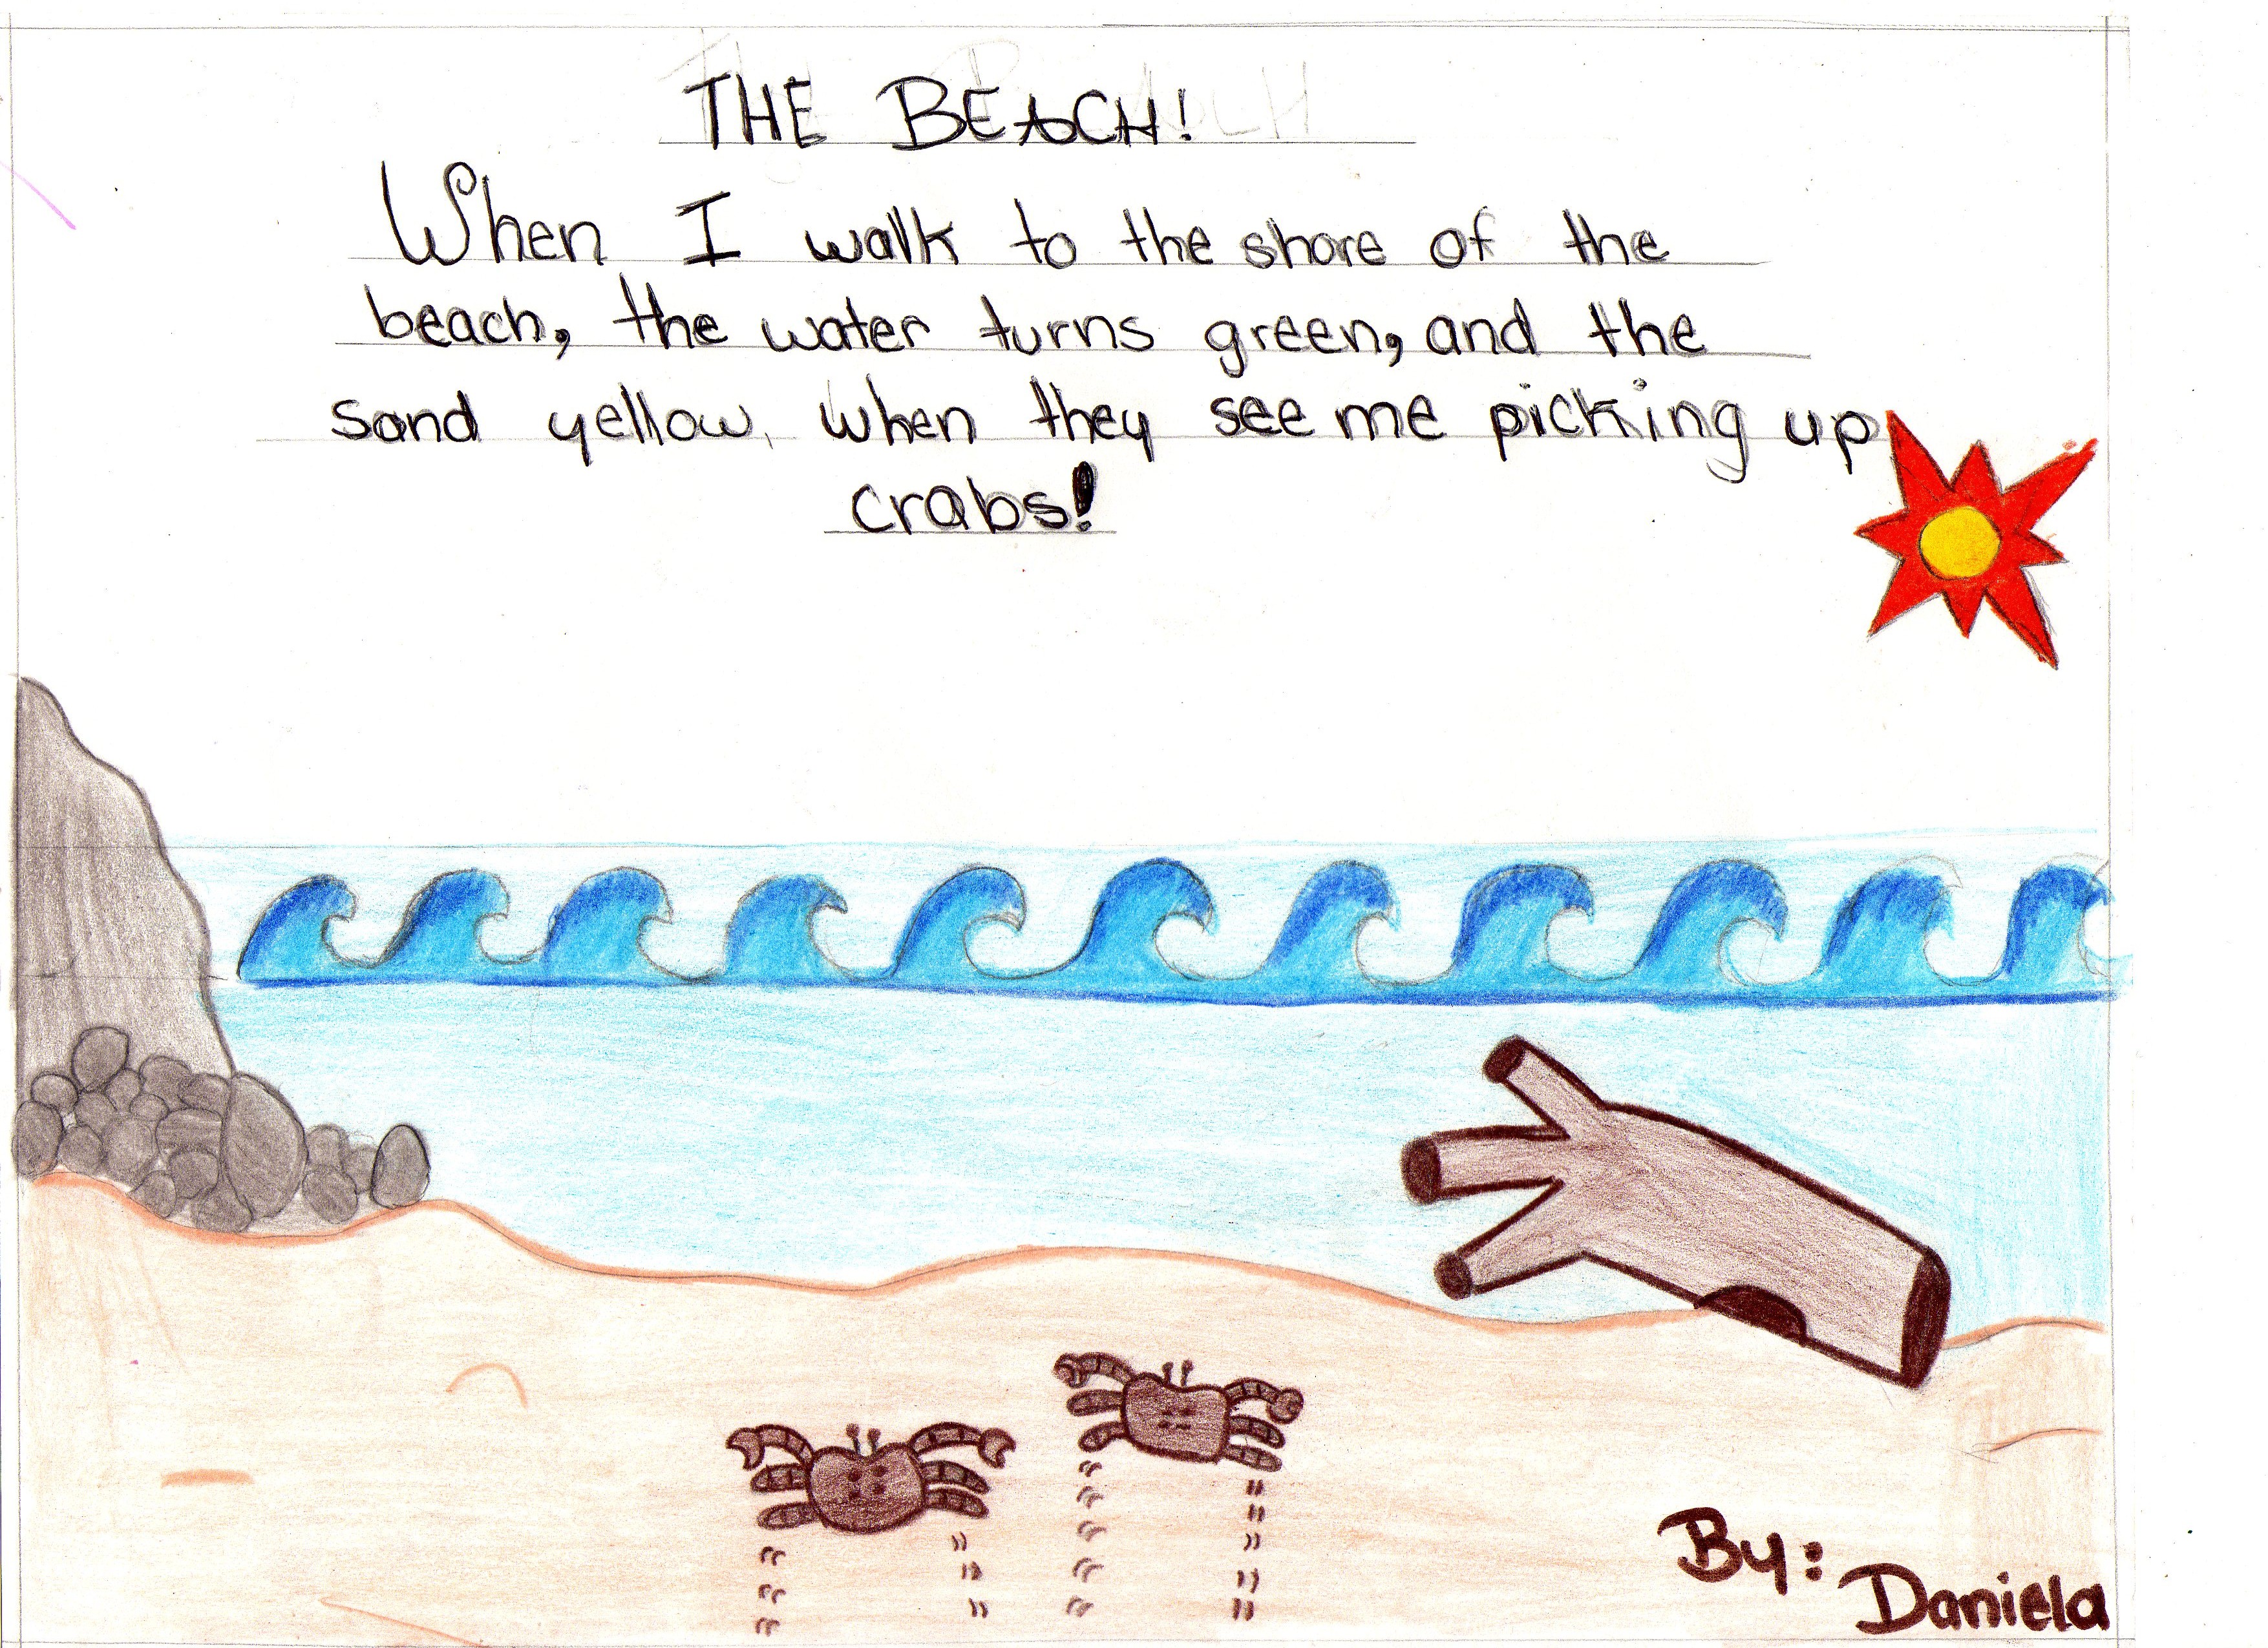 THE BEACH!
When I walk to the shore of the
beach, the water turns green, and the
sand yellow, when they see me picking up
crabs!
By:
Daniela